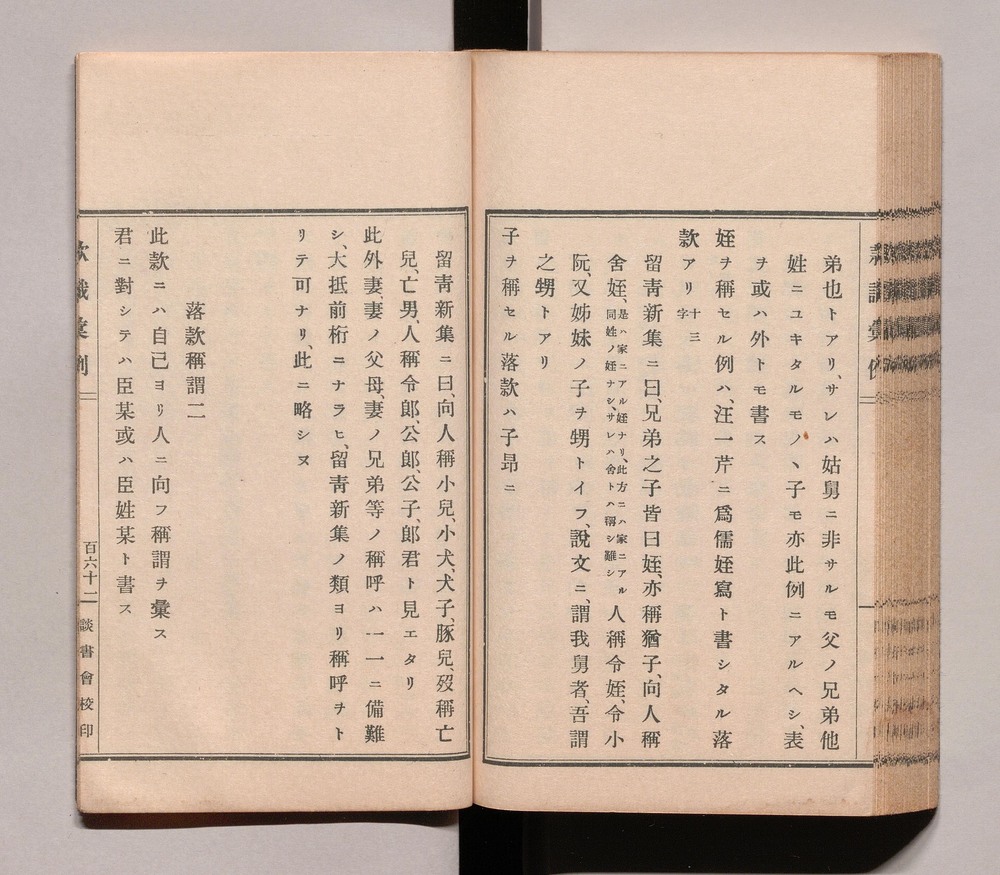 弟也トアリ、サレハ姑舅ニ非サルモ父ノ兄弟他
姓ニユキタルモノヽ子モ亦此例ニアルヘシ、表
ヲ或ハ外トモ書ス
姪ヲ稱セル例ハ、汪一芹ニ爲儒姪寫ト書シタル落
款アリ十三字
留靑新集ニ曰、兄弟之子皆曰姪、亦稱猶子、向人稱
舍姪、是ハ家ニアル姪ナリ、此方ニハ家ニアル同姓ノ姪ナシ、サレハ舍トハ稱シ難シ人稱令姪、令小
阮、又姊妹ノ子ヲ甥トイフ、說文ニ、謂我舅者、吾謂
之甥トアリ
子ヲ稱セル落款ハ子昂ニ
留靑新集ニ曰、向人稱小兒、小犬、犬子、豚兒、歿稱亡
兒、亡男、人稱令郎、公郎、公子、郎君ト見エタリ
此外妻、妻ノ父母、妻ノ兄弟等ノ稱呼ハ一一ニ備難
シ、大抵前桁ニナラヒ、留靑新集ノ類ヨリ稱呼ヲト
リテ可ナリ、此ニ略シヌ
落款稱謂二
此款ニハ自己ヨリ人ニ向フ稱謂ヲ彙ス
君ニ對シテハ臣某或ハ臣姓某ト書ス
款識彙例
百六十二
談書會校印